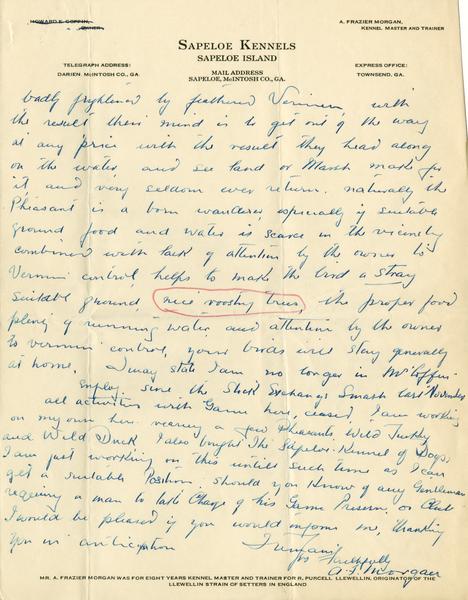 HOWARD E. COFFIN,
OWNER
A. FRAZIER MORGAN,
KENNEL MASTER AND TRAINER
SAPELOE KENNELS
SAPELOE ISLAND
TELEGRAPH ADDRESS:
DARIEN, McINTOSH CO., GA.
MAIL ADDRESS
SAPELOE, McINTOSH CO., GA.
EXPRESS OFFICE:
TOWNSEND, GA.
badly frightened by feathered Vermin, with
the result their mind is to get out of the way
at any price with the result they head along
on the water and see land or Marsh make for
it, and very seldom ever return. naturally the
Pheasant is a born wanderer especially if suitable
ground food and water is scarce in the vicinity
combined with lack of attention by the owner to
Vermin control helps to make the bird a Stray
Suitable ground, nice roosting trees, the proper food
plenty of running water and attention by the owner
to vermin control, your birds will stay generally
at home. I may state I am no longer in Mr Coffin
Employ, since the Stock Exchange Smash last November
all activities with Game here, ceased, I am working
on my own here rearing a few Pheasants, Wild Turkey
and Wild Duck I also bought The Sapeloe Kennel of Dogs,
I am just working on this until such time as I can
get a suitable Position. should you Know of any Gentleman
requiring a man to take Charge of his Game Preserve, or Club
I would be pleased if you would inform me, thanking
you in anticipation
I remain
yrs Faithfully
A. F. Morgan
MR. A. FRAZIER MORGAN WAS FOR EIGHT YEARS KENNEL MASTER AND TRAINER FOR R. PURCELL LLEWELLIN, ORIGINATOR OF THE
LLEWELLIN STRAIN OF SETTERS IN ENGLAND